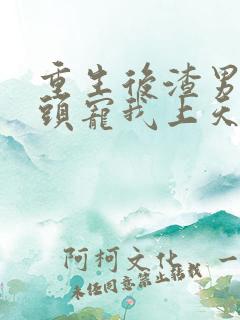 重生後渣男
頭寵我上天
阿柯文化 一
未经同意禁止转载